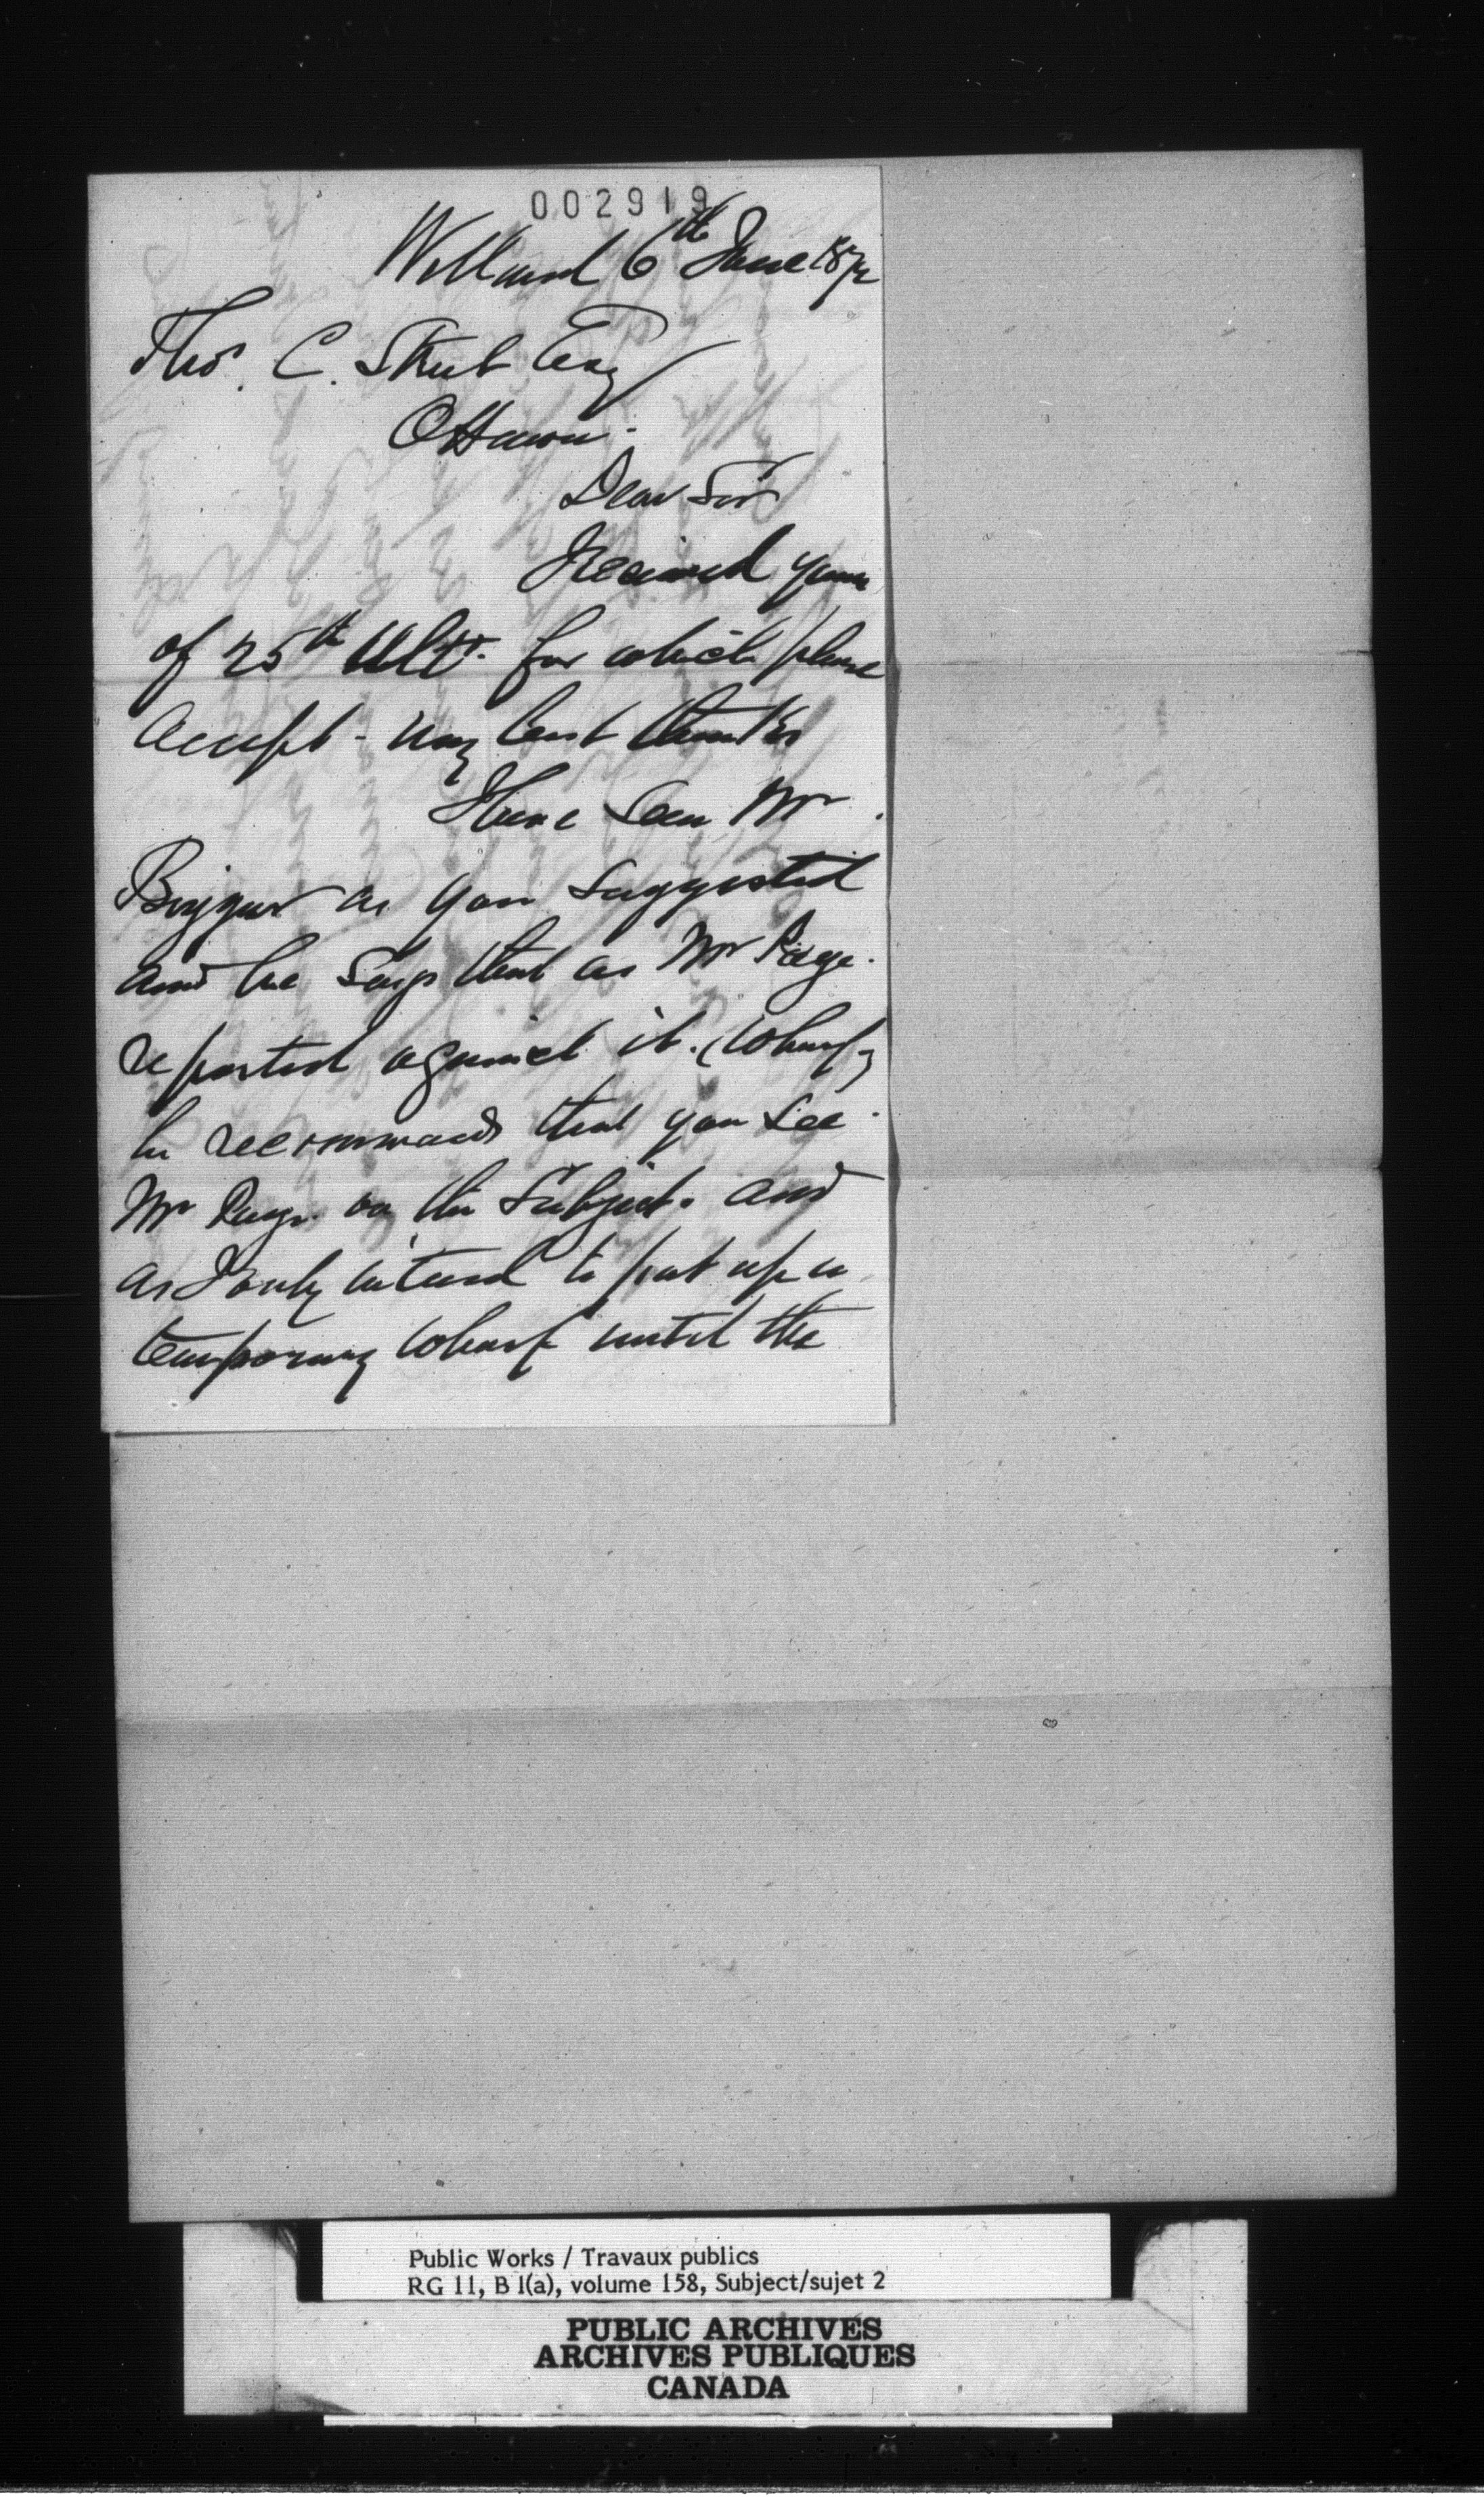 002919
Welland 6th June 1872
Thos. C. Street Esq
Ottawa.
Dear Sir
I Received yours
of 25th Ulto. for which please
accept - my best thanks
I have seen Mr
Biggar as you suggested
and he says that as Mr Page.
reported against it. (Wharf)
he recommends that you see
Mr Page. on the subject. and
as I only intend to put up a
temporary wharf until the
Public Works / Travaux publics
RG 11, B 1(a), volume 158, Subject/sujet 2
PUBLIC ARCHIVES
ARCHIVES PUBLIQUES
CANADA